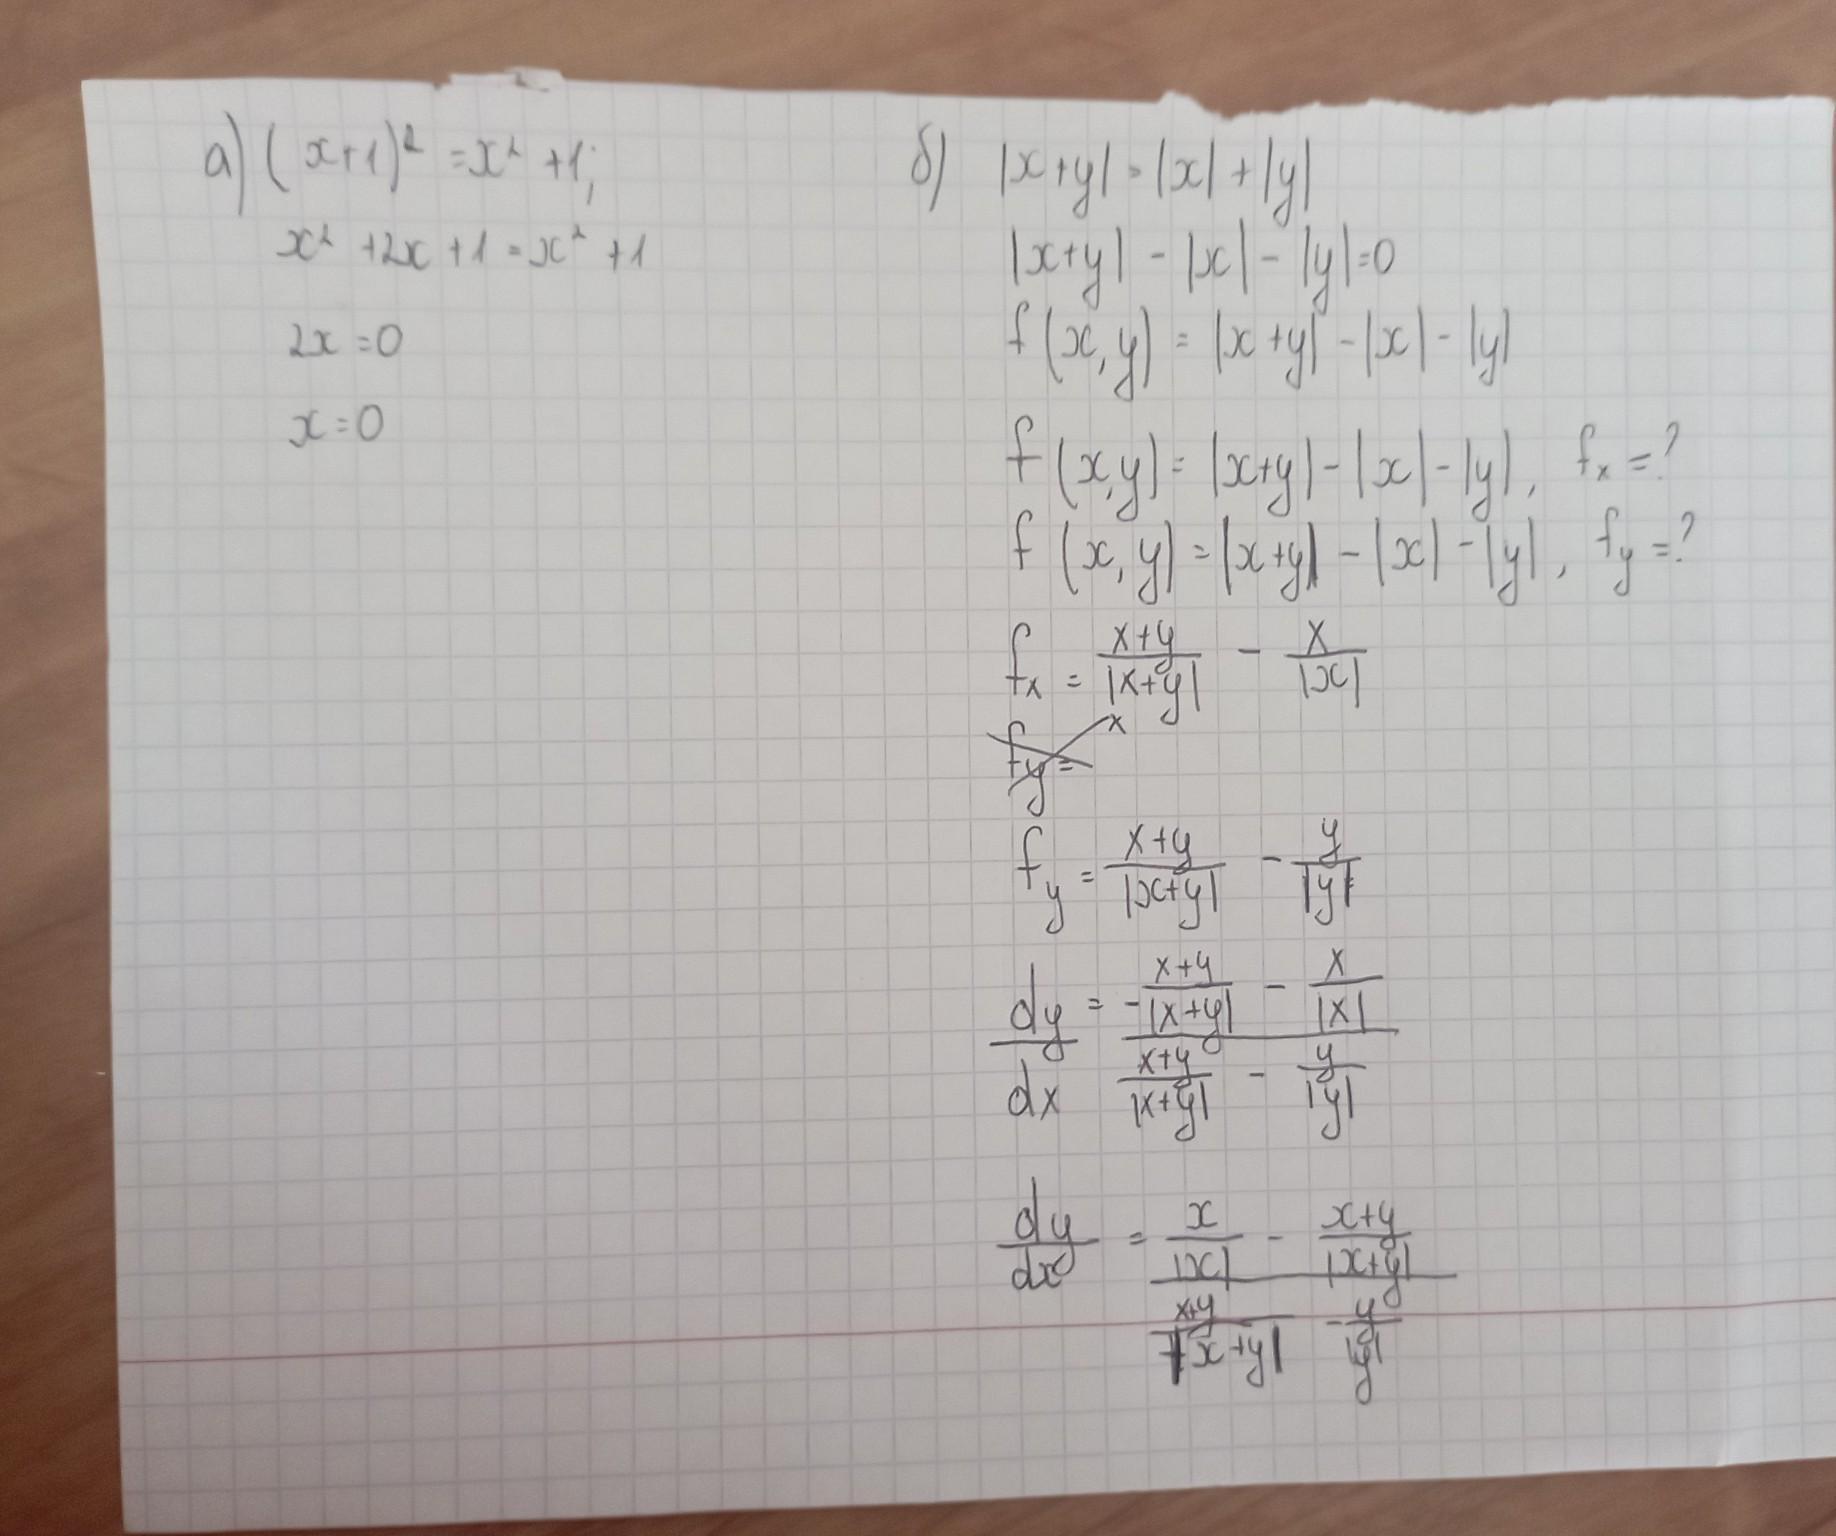 а) (x+1)² = x² + 1;
x² + 2x + 1 = x² + 1
2x = 0
x = 0
б) |x+y| = |x| + |y|
|x+y| - |x| - |y| = 0
f(x,y) = |x+y| - |x| - |y|
f(x,y) = |x+y| - |x| - |y|, fₓ = ?
f(x,y) = |x+y| - |x| - |y|, f_y = ?
fₓ = (x+y)/|x+y| - x/|x|
f_y = (x+y)/|x+y| - y/|y|
dy/dx = (-(x+y)/|x+y| - x/|x|)/((x+y)/|x+y| - y/|y|)
dy/dx = (x/|x| - (x+y)/|x+y|)/((x+y)/|x+y| - y/|y|)